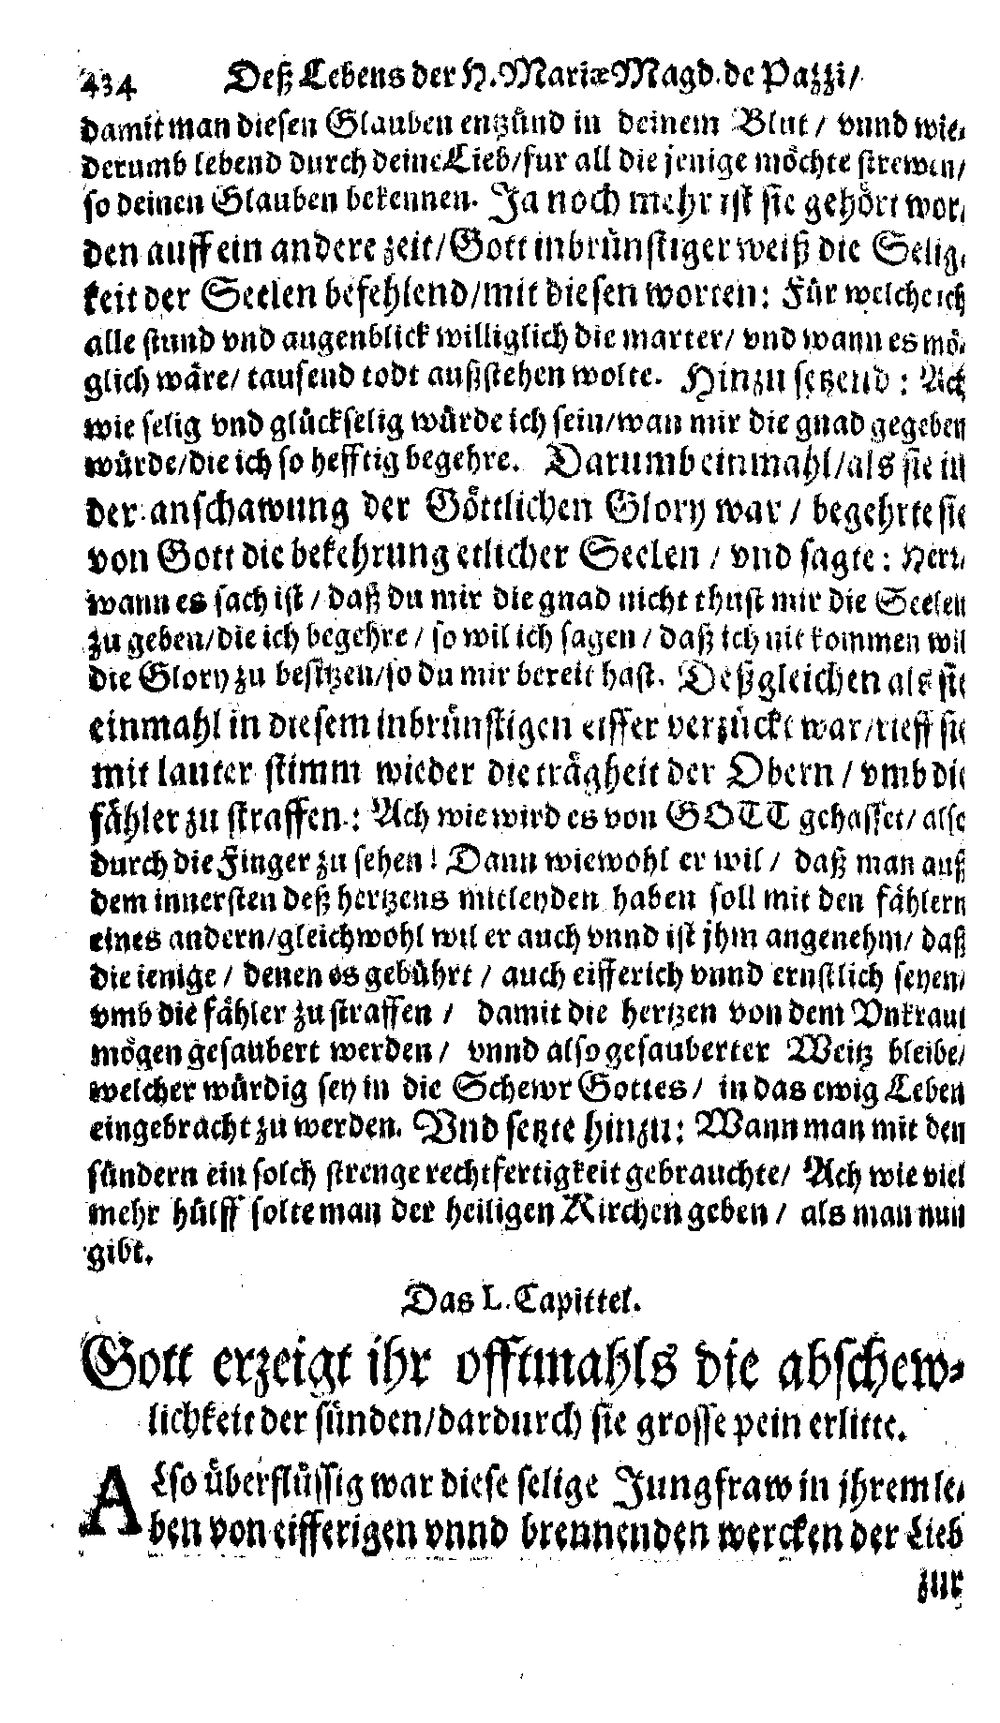 434 Deß Lebens der H. Mariæ Magd. de Pazzi/
damit man diesen Glauben entzünd in deinem Blut / vnnd wie-
derumb lebend durch deine Lieb/fur all die jenige möchte strewen/
so deinen Glauben bekennen. Ja noch mehr ist sie gehört wor-
den auff ein andere zeit/Gott inbrünstiger weiß die Selig-
keit der Seelen befehlend/mit diesen worten: Für welche ich
alle stund vnd augenblick williglich die marter/ vnd wann es mö-
glich wäre/ tausend todt außstehen wolte. Hinzu setzend: Ach
wie selig vnd glückselig würde ich sein/wan mir die gnad gegeben
würde/die ich so hefftig begehre. Darumb einmahl/als sie in
der anschawung der Göttlichen Glory war / begehrte sie
von Gott die bekehrung etlicher Seelen / vnd sagte: Herr/
wann es sach ist / daß du mir die gnad nicht thust mir die Seelen
zu geben/die ich begehre / so wil ich sagen / daß ich nit kommen wil
die Glory zu besitzen/so du mir bereit hast. Deßgleichen als sie
einmahl in diesem inbrünstigen eiffer verzückt war/rieff sie
mit lauter stimm wieder die trägheit der Obern / vmb die
fähler zu straffen.: Ach wie wird es von GOTT gehasset/ also
durch die Finger zu sehen! Dann wiewohl er wil / daß man auß
dem innersten deß hertzens mitleyden haben soll mit den fählern
eines andern/gleichwohl wil er auch vnnd ist jhm angenehm/ daß
die ienige / denen es gebührt / auch eifferich vnnd ernstlich seyen/
vmb die fähler zu straffen / damit die hertzen von dem Vnkraut
mögen gesaubert werden / vnnd also gesauberter Weitz bleibe/
welcher würdig sey in die Schewr Gottes / in das ewig Leben
eingebracht zu werden. Vnd setzte hinzu: Wann man mit den
sündern ein solch strenge rechtfertigkeit gebrauchte/ Ach wie viel
mehr hülff solte man der heiligen Kirchen geben / als man nun
gibt.
Das L. Capittel.
Gott erzeigt ihr offtmahls die abschew-
lichkeit der sünden/dardurch sie grosse pein erlitte.
Also überflüssig war diese selige Jungfraw in jhrem le-
ben von eifferigen vnnd brennenden wercken der Lieb
zur